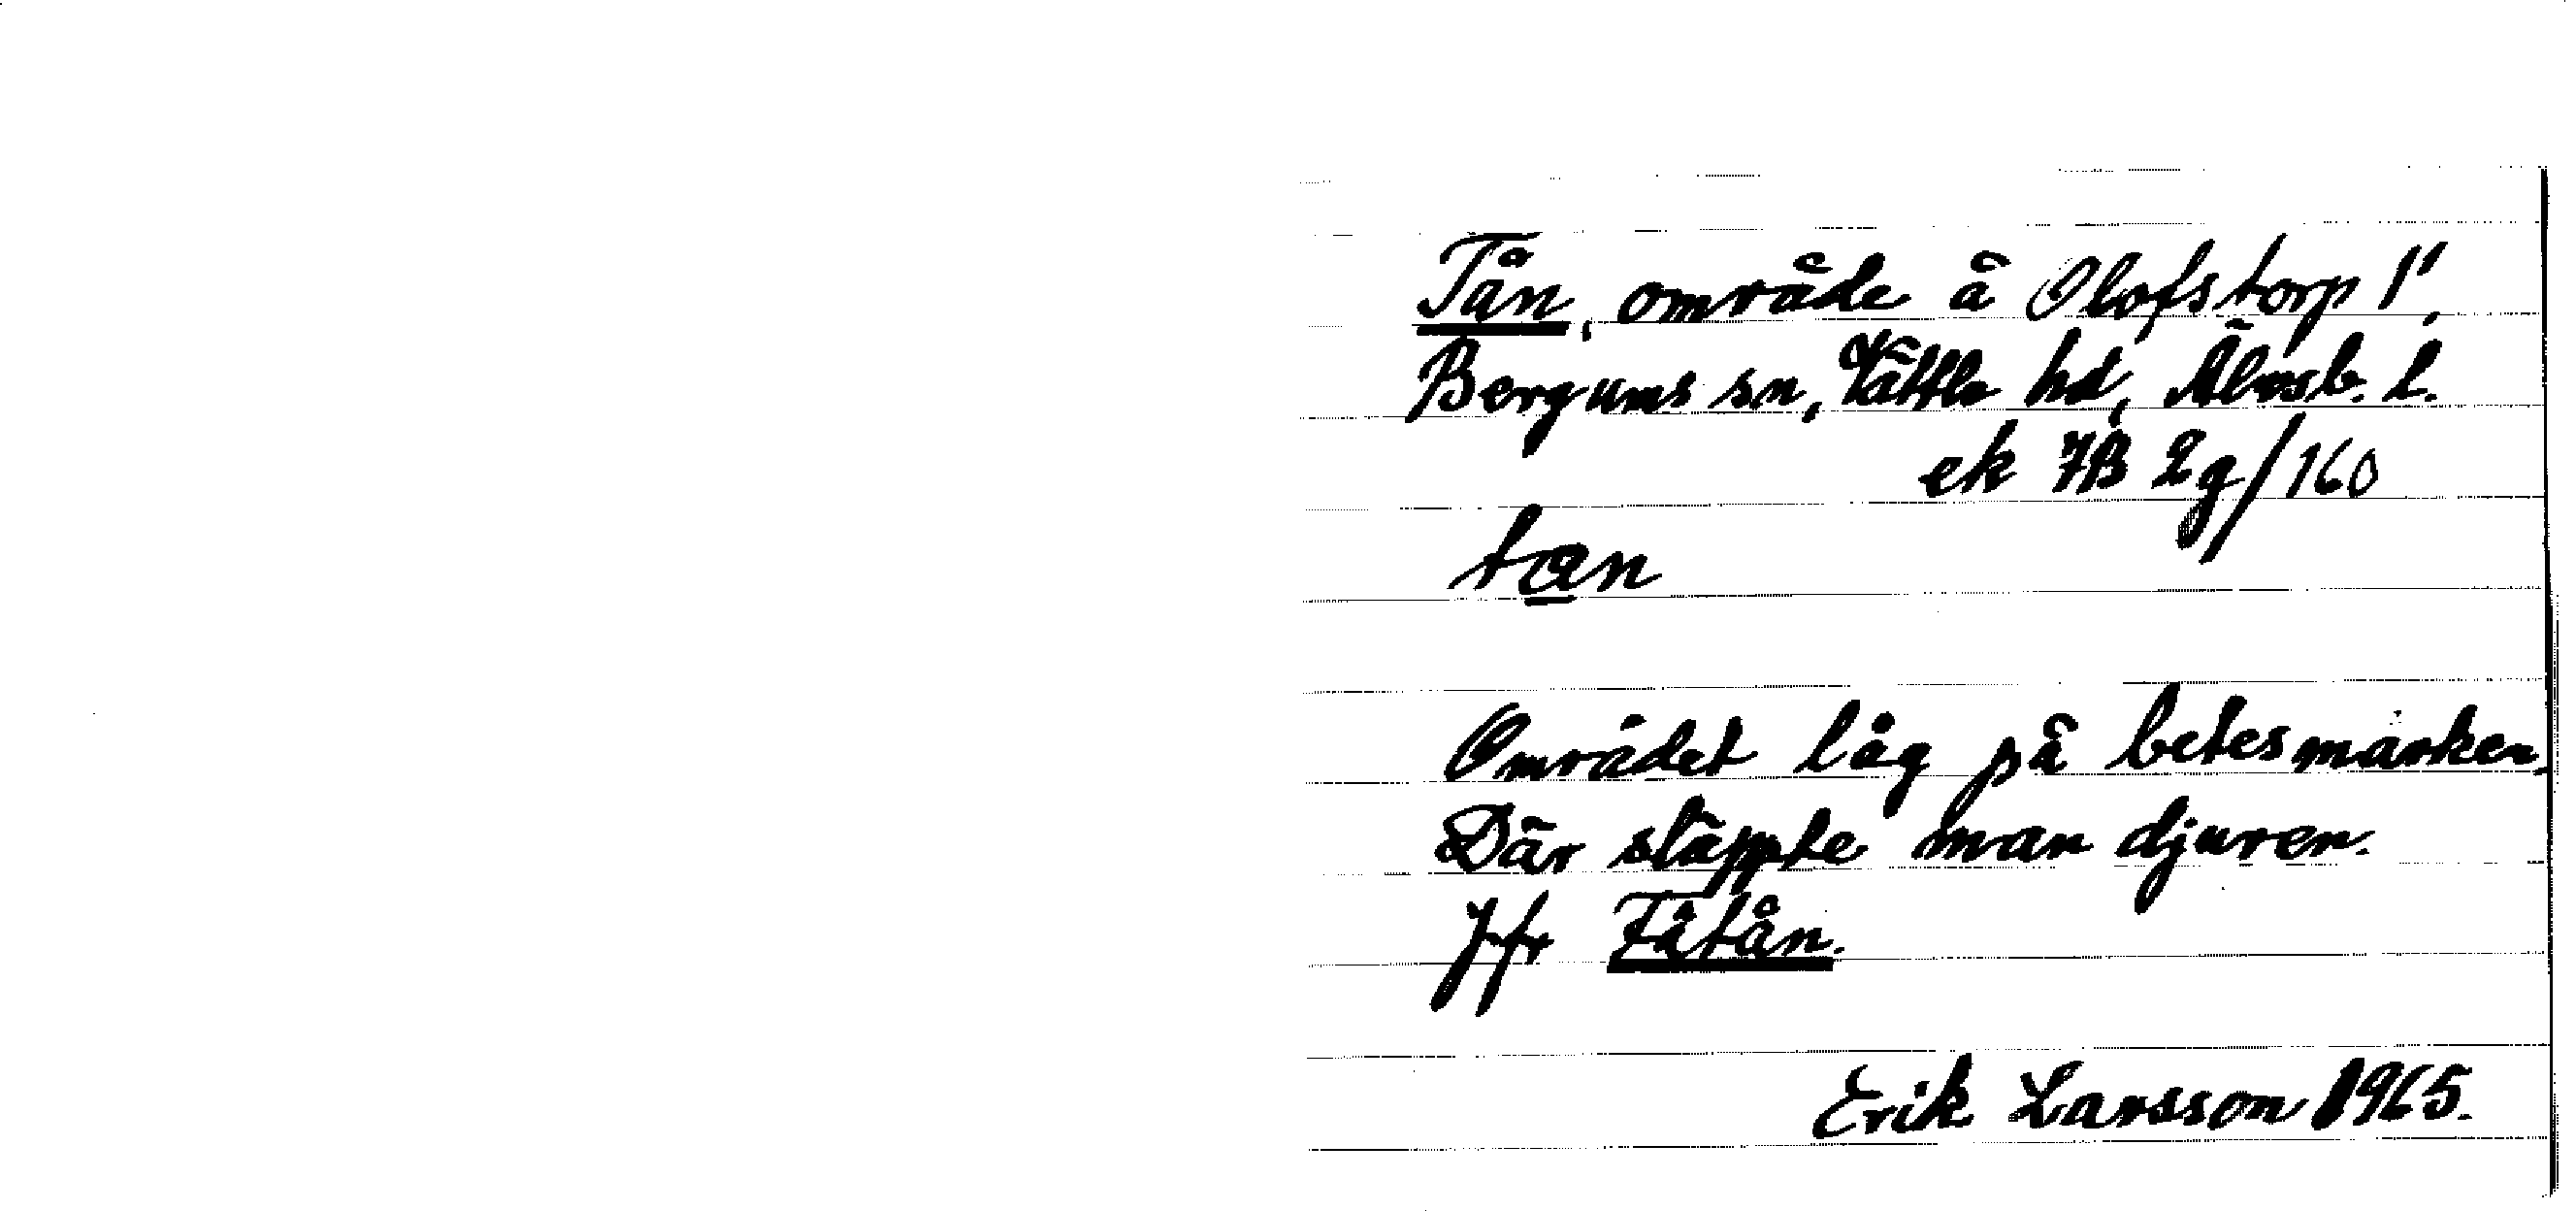 Tån, område å Olofstorp 1¹,
Bergums sn, Vättle hd, Älvsb. l.
ek 7B 2g/160
tan
Området låg på betesmarken.
Där släppte man djuren.
Jfr Fåtån.
Erik Larsson 1965.